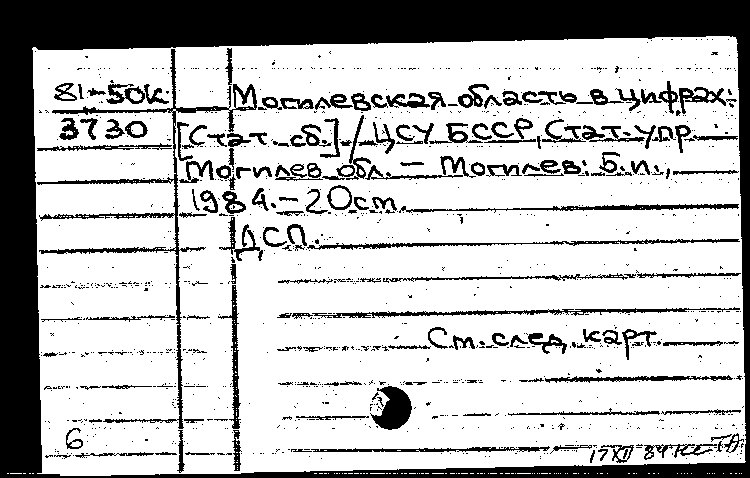 81-50к Могилевская область в цифрах:
3730 [Стат. сб.] / ЦСУ БССР, Стат. упр.
Могилев. обл. — Могилев: Б.и.,
1984. – 20 см.
ДСП.
См. след. карт.
6
17 XII 84